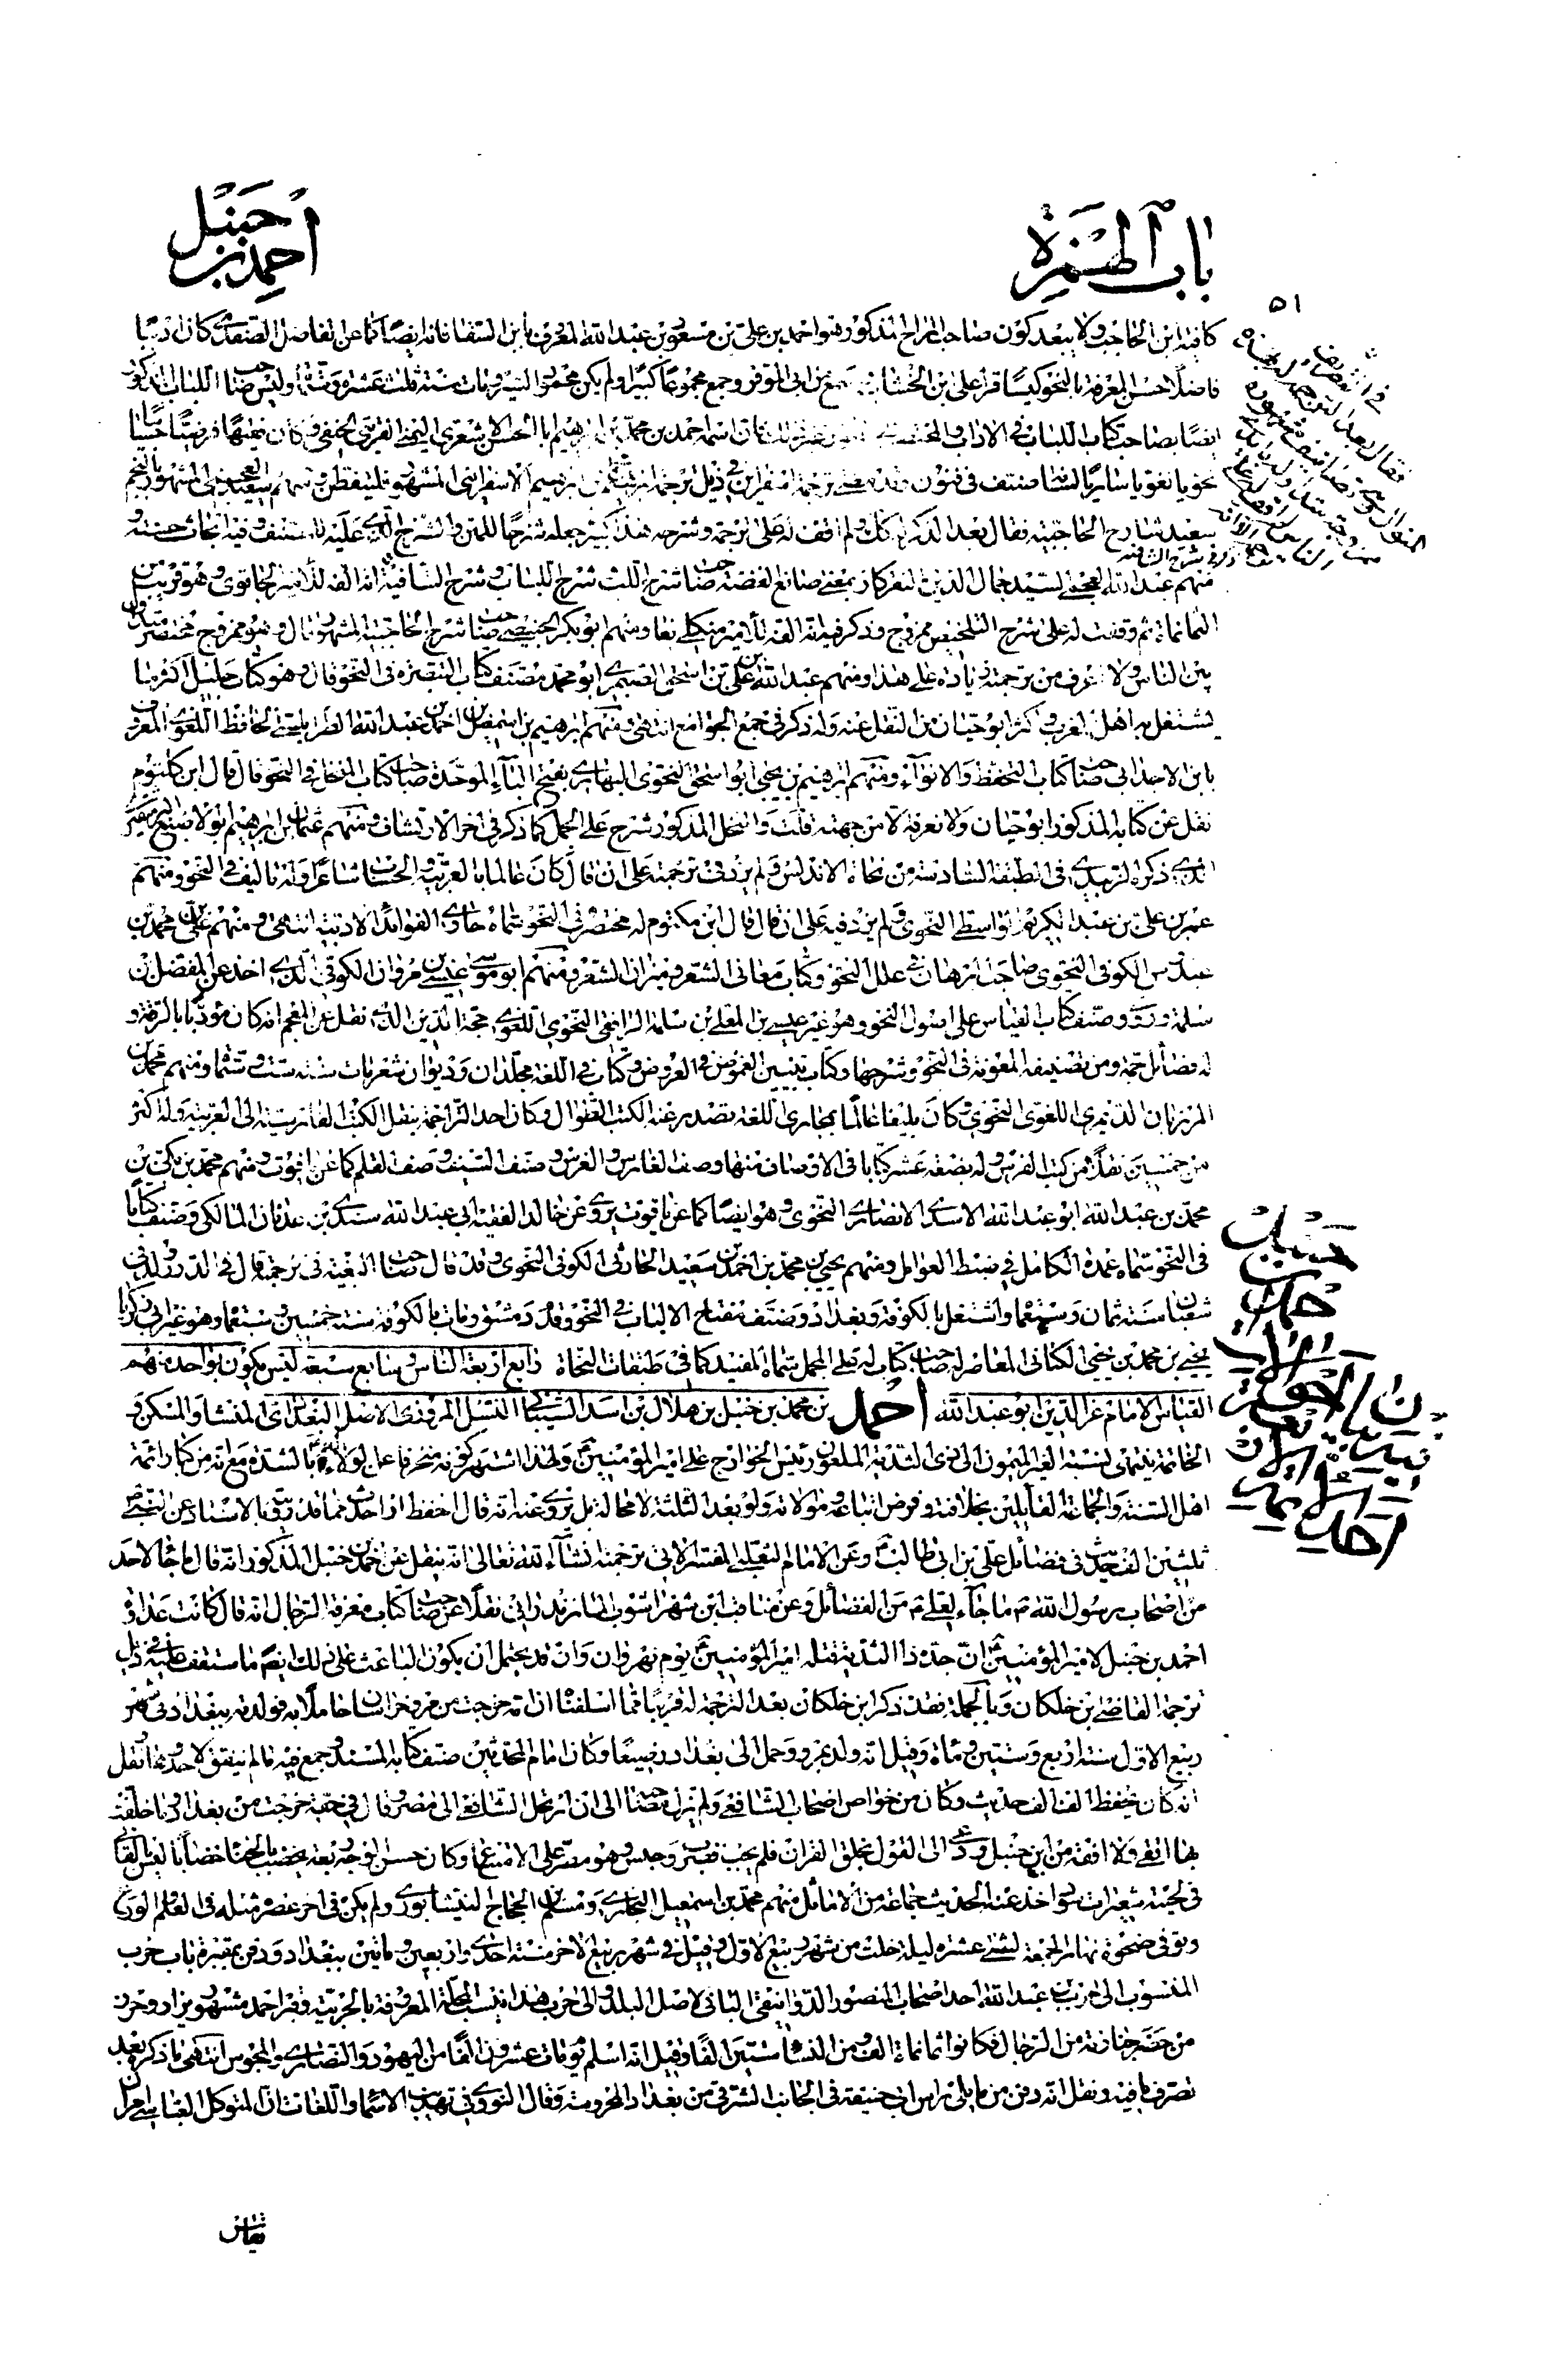 باب الهمزة
احمد بن حنبل
٥١
كافية ابن الحاجب ولا يبعد كون صاحب المراح المذكور هو احمد بن علي بن مسعود بن عبد الله المعروف بابن السقا فانه ايضا كما عن الفاضل الصفدي كان اديبا
فاضلا حسن المعرفة بالنحو كيسا قرأ على ابن الخشاب وسمع من ابي الوقت وجمع مجموعا كبيرا ولم يكن محمود السيرة مات سنة ثلث عشرة وستمأة وليس صاحب اللباب المذكور
ايضا بصاحب كتاب اللباب في الاداب اسمه احمد بن محمد بن ابرهيم ابا الحسن الاشعري اليمني القرشي الحنفي وكان فقيها فرضيا حسابيا
نحويا لغويا نسابة صنف في فنون في ذيل ترجمة ابرهيم الاسفرايني المشهور فليتفطن ومنهم سعيد العجمي المشهور بالنجم
سعيد شارح الحاجبية فقال بعد الذكر له كك ولم اقف له على ترجمة وشرحه هذا كبير جعله شرحا للمتن والشرح الذي عليه للمصنف وفيه ابحاث حسنة و
منهم عبد الله العجمي السيد جمال الدين النقركار بمعنى صانع الفضة صاحب شرح اللب شرح اللباب وشرح الشافية انه الفه للامير الجابوي وهو قريب من
الثمانمأة ثم وقفت له على شرح التلخيص ممزوج وذكر فيه انه الفه للامير منكلي بغا ومنهم ابو بكر الخبيصي صاحب شرح الحاجبية المشهور قال وهو ممزوج مختصر متداول
بين الناس ولا اعرف من ترجمته زيادة على هذا ومنهم عبد الله بن علي بن اسحق الصيمري ابو محمد مصنف كتاب التبصرة في النحو قال وهو كتاب جليل اكثر ما
يشتغل به اهل المغرب واكثر ابو حيان من النقل عنه وله ذكر في جمع الجوامع انتهى ومنهم ابرهيم بن اسمعيل بن احمد بن عبد الله الطرابلسي الحافظ اللغوي المعروف
بابن الاجدابي صاحب كتاب التحفظ والانواء ومنهم ابرهيم بن يحيى ابو اسحق النحوي البهاري بفتح الباء الموحدة صاحب كتاب النخل في النحو قال قال ابن مكتوم
نقل عن كتابه المذكور ابو حيان ولا نعرفه الا من جهته قلت والنخل المذكور شرح على الجمل كما ذكر في اخر الارتشاف ومنهم عثمان بن ابرهيم ابو الاصبغ
الذي ذكره الزبيدي في الطبقة السادسة من نحاة الاندلس ولم يزد في ترجمته على ان قال كان عالما بالعربية والحساب شاعرا وله تاليف في النحو ومنهم
عمر بن علي بن عبد الكريم الواسطي النحوي ولم يزد فيه على ان قال قال ابن مكتوم له مختصر في النحو سماه حاوي الفوائد الادبية انتهى ومنهم علي بن محمد بن
عبدوس الكوفي النحوي صاحب البرهان في علل النحو وكتاب معاني الشعر وميزان الشعر ومنهم ابو موسى عيسى بن مروان الكوفي الذي اخذ عن المفضل بن
سلمة وروى وصنف كتاب القياس على اصول النحو وهو غير عيسى بن المعلى بن سلمة الرافقي النحوي اللغوي حجة الدين الذي نقل عن المعجم انه كان مؤدبا بالرقة و
له فضائل جمة ومن تصنيفه المعونة في النحو وشرحها وكتاب تبيين الغموض في العروض وكتاب في اللغة مجلدان وديوان شعر مات سنة ست وستمأة ومنهم محمد بن
المرزبان الديمري اللغوي النحوي كان بليغا عالما بمجاري اللغة تصدر عنه الكتب الطوال وكان احد التراجمة ينقل الكتب الفارسية الى العربية وله اكثر
من خمسين نقلا من كتب الفرس وله بضعة عشر كتابا في الاوصاف منها وصف الفارس والفرس وصف السيف وصف القلم كما عن ياقوت ومنهم محمد بن مكي بن
محمد بن عبد الله ابو عبد الله الاسدي الانصاري النحوي وهو ايضا كما عن ياقوت يروي عن خالد الفقيه ابي عبد الله سندي بن عدنان المالكي وصنف كتابا
في النحو سماه عمدة الكامل في ضبط العوامل ومنهم يحيى بن محمد بن احمد بن سعيد الحارثي الكوفي النحوي وقد قال صاحب البغية في ترجمته قال في الدرر ولد في
شعبان سنة ثمان وسبعمأة واشتغل بالكوفة وبغداد وصنف مفتاح الالباب في النحو وقدم دمشق ومات بالكوفة سنة خمسين وسبعمأة وهو غير ابي زكريا
يحيى بن محمد بن يحيى الكناني المعاصر له صاحب كتاب له على الجمل سماه المفيد كما في طبقات النحاة رابع اربعة الناس وسابع سبعة ليس يكون بواحد منهم
القياس الامام عز الدين ابو عبد الله احمد بن محمد بن حنبل بن هلال بن اسد الشيباني النسل المروزي الاصل البغدادي المنشأ والمسكن و
الخاتمة ينتهي لنسبه الغير الميمون الى ذي الثدية الملعون رئيس الخوارج على امير المؤمنين ولهذا اشتهر كونه منحرفا عن الولاء له بالشدة مع انه من كبار ائمة
اهل السنة والجماعة القائلين بخلافته وفرض اتباعه وموالاته ولو بعد الثلثة لا محالة بل يروى عنه انه قال احفظ او احدث مما قد رويته بالاسناد عن النبي ص
ثلثين الف حديث في فضائل علي بن ابي طالب وعن الامام الثعلبي المفسر الاتي ترجمته انشاء الله تعالى انه ينقل عن احمد بن حنبل المذكور انه قال ما جاء لاحد
من اصحاب رسول الله ص ما جاء لعلي ع من الفضائل وعن مناقب ابن شهراشوب المازندراني نقلا عن صاحب كتاب معرفة الرجال انه قال كانت عداوة
احمد بن حنبل لامير المؤمنين ان جده ذا الثدية قتله امير المؤمنين يوم نهروان وان قد يحتمل ان يكون الباعث على ذلك ايضا ما ستقف عليه في ذيل
ترجمة القاضي ابن خلكان وبالجملة فقد ذكر ابن خلكان بعد الترجمة له قريبا مما اسلفناه ان امه خرجت من مرو خراسان حاملا به فولدته ببغداد في شهر
ربيع الاول سنة اربع وستين ومأة وقيل انه ولد بمرو وحمل الى بغداد رضيعا وكان امام المحدثين صنف كتابه المسند وجمع فيه ما لم يتفق لاحد غيره ونقل
انه كان يحفظ الف الف حديث وكان من خواص اصحاب الشافعي ولم يزل مصاحبا الى ان ارتحل الشافعي الى مصر وقال في حقه خرجت من بغداد وما خلفت
بها اتقى ولا افقه من ابن حنبل ودعى الى القول بخلق القران فلم يجب فضرب وحبس وهو مصر على الامتناع وكان حسن الوجه ربعة يخضب بالحناء خضابا ليس بالقاني
في لحيته شعرات سود اخذ عنه الحديث جماعة من الاماثل منهم محمد بن اسمعيل البخاري ومسلم بن الحجاج النيشابوري ولم يكن في اخر عصره مثله في العلم والورع
وتوفي ضحوة نهار الجمعة لثنتي عشرة ليلة خلت من شهر ربيع الاول وقيل في شهر ربيع الاخر سنة احدى واربعين ومأتين ببغداد ودفن بمقبرة باب حرب
المنسوب الى حرب بن عبد الله احد اصحاب المنصور الدوانيقي الباني لاصل البلد والى حرب هذا ينسب المحلة المعروفة بالحربية وقبر احمد مشهور يزار وحزر
من حضر جنازته من الرجال فكانوا ثمانمأة الف ومن النساء ستين الفا وقيل انه اسلم يوم مات عشرون الفا من اليهود والنصارى والمجوس انتهى ما ذكره بعد
تصرف ما فيه ونقل انه دفن من ما يلي راس ابي حنيفة في الجانب الشرقي من بغداد المحروسة وقال النووي في تهذيب الاسماء واللغات ان المتوكل العباسي امر ان
يقاس